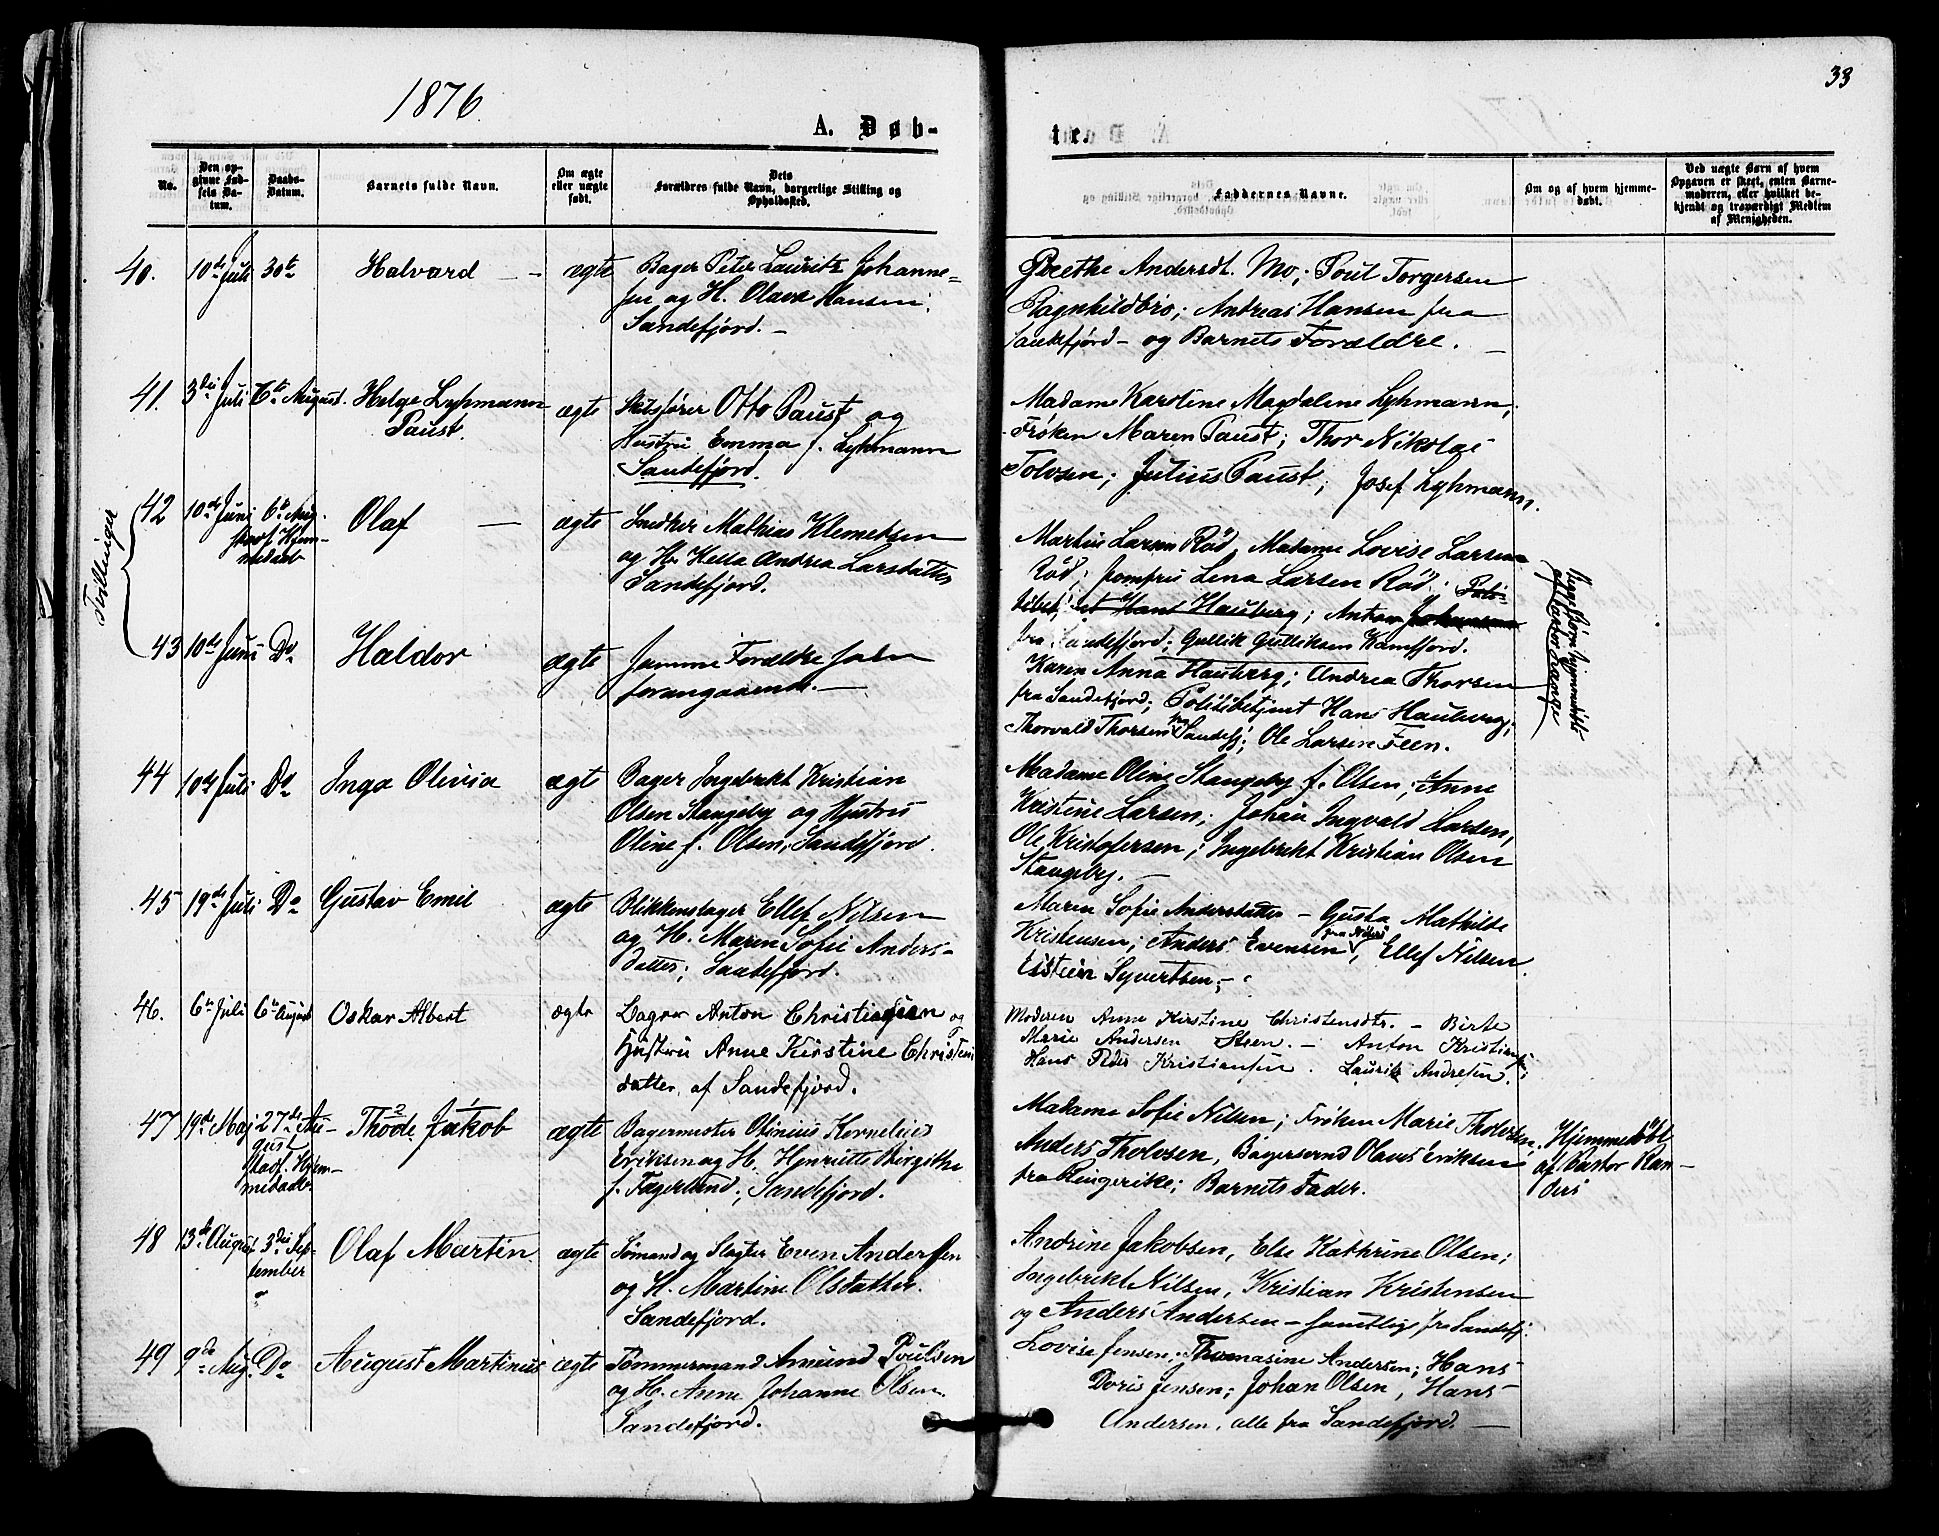 1876.
33
A. Døb-
te.
No.
Den op-
givne Fød-
sels Da-
tum.
Daabs-
Datum.
Barnets fulde Navn.
Om ægte
eller uægte
født.
Dets
Forældres fulde Navn, borgerlige Stilling og
Opholdssted.
Faddernes Navne.
Om og af hvem hjemme-
døbt.
Ved uægte Børn af hvem
Opgaven er skeet, enten Barne-
moderen, eller hvilket be-
kjendt og troværdigt Medlem
af Menigheden.
40. 10de Juli 30te Halvard - ægte Bager Peter Lauritz Johanne-
sen og H. Olava Hansen;
Sandefjord. -
Andersdt. Mo; Poul Torgersen
Ragnhildbro; Andreas Hansen fra
Sandefjord - og Barnets Forældre. -
41. 3die Juli 6te August. Helge Lyhmann
Paust.
ægte Skibsfører Otto Paust og
Hustru Emma f. Lyhmann
Sandefjord.
Madame Karoline Magdalene Lyhmann,
Frøken Maren Paust; Thor Nikolai
Tolvsen; Julius Paust; Josef Lyhmann.
Tvillinger
42 10de Juni 6te Aug.
stadf. Hjem-
medaab
Olaf - ægte Snedker Mathias Klemetsen
og H. Andrea Larsdatter
Sandefjord.
Martin Larsen Rød, Madame Lovise Larsen
Rød; Jomfru Lena Larsen Rød;
Hans Hauberg; Anton
fra Sandefjord; Gullik Gulliksen Kamfjord.
Begge Børn hjemmedøbt
af Pastor Lange
43 10de Juni Do Haldor ægte Samme Foreldre som
forangaaende. -
Karen Anna Hauberg; Andrea Thorsen
fra Sandefjord; Politibetjent Hans Hauberg;
Thorvald Thorsen fra Sandefj; Ole Larsen Feen.
44 10de Juli Do Inga Olivia ægte Bager Ingebrekt Kristian
Olsen Stangeby og Hustru
Oline f. Olsen, Sandefjord.
Madame Oline Stangeby f. Olsen; Anne
Kristine Larsen; Johan Ingvald Larsen,
Ole Kristofersen; Ingebrekt Kristian Olsen
Stangeby. -
45 19de Juli Do Gustav Emil ægte Blikkenslager Ellef Nilsen
og H. Maren Sofie Anders-
datter; Sandefjord.
Maren Sofie Andersdatter - Gusta Mathilde
Kristensen; Anders Evensen, Ellef Nilsen
Syvertsen; -
46. 6te Juli 6te August Oskar Albert ægte Anton Christiansen og
Hustru Anne Kirstine Christens
datter, af Sandefjord.
Moderen Anne Kirstine Christensdtr. - Birte
Marie Andersen Steen. - Anton Kristiansen;
Hans Peder Kristiansen. Laurits Andresen.
47 19de Maj 27de Au-
gust
Stadf. Hjem-
medaab.
Thode Jakob
2 1
ægte Bagermester Olinius Kornelius
Eriksen og H. Henriette Birgithe
f. Fagerlund; Sandefjord.
Madame Sofie Nilsen; Frøken Marie Tholvsen,
Anders Tholvsen, Bagersvend Olaus Eriksen
fra Ringerike; Barnets Fader.
Hjemmedøbt
af Pastor Ran-
ders
48 13de August 3die Sep-
tember
Olaf Martin ægte Sømand og Slagter Even Andersen
og H. Martine Olsdatter.
Sandefjord.
Andrine Jakobsen, Else Kathrine Olsen;
Ingebrekt Nilsen, Kristian Kristensen
og Anders Andersen - samtlige fra Sandefj.
49 9de Aug. Do August Martinius ægte Tømmermand Amund Poulsen
og H. Anne Johanne Olsen
Sandefjord.
Lovise Jensen, Thomasine Andersen; Hans
Doris Jensen; Johan Olsen, Hans
Andersen, alle fra Sandefjord. -